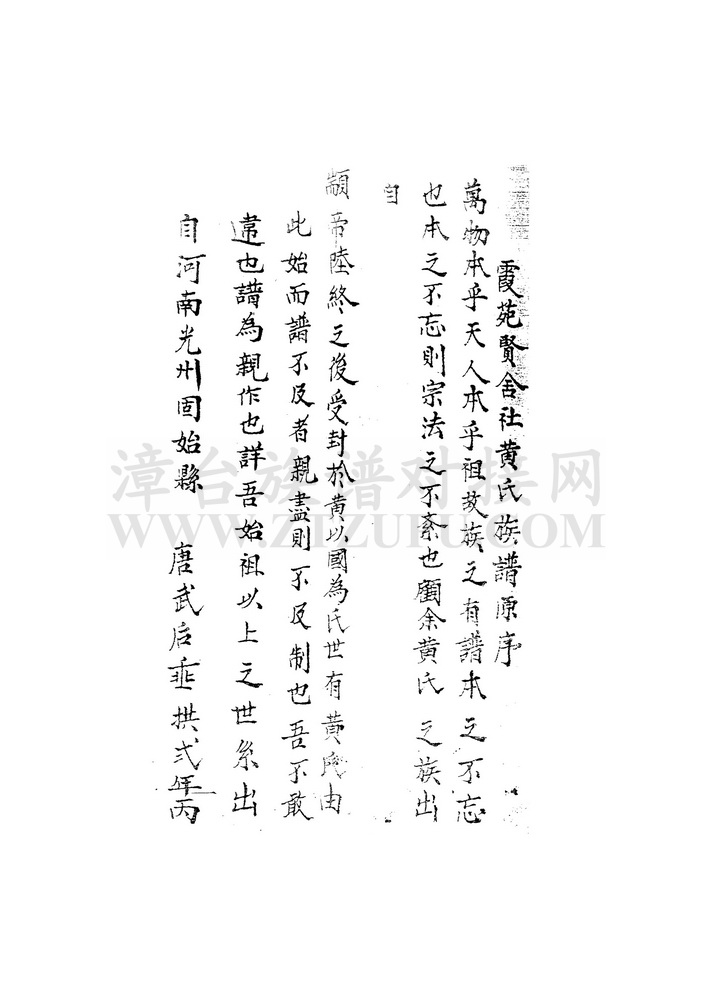 霞苑賢舍社黄氏族譜原序
萬物本乎天人本乎祖故族之有譜本之不忘
也本之不忘則宗法之不紊也顧余黄氏之族出
自
顓帝陸終之後受封於黄以國為氏世有黄氏由
此始而譜不及者親盡則不及制也吾不敢
違也譜為親作也詳吾始祖以上之世系出
自河南光州固始縣 唐武后垂拱弍年丙
漳台族谱对接网
WWW.ZTZUPU.COM